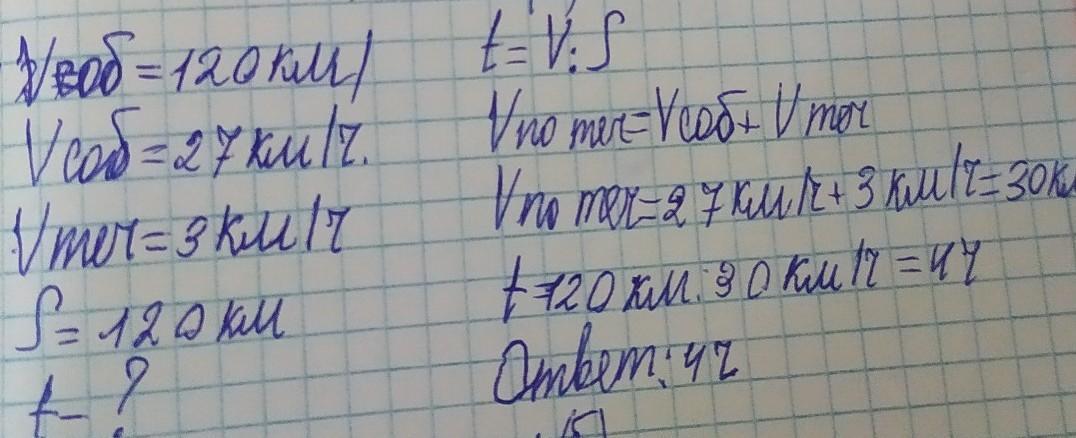 Vсоб = 120 км/
Vсоб = 27 км/ч.
Vтеч = 3 км/ч
S = 120 км
t - ?
t = V : S
Vпо теч = Vсоб + Vтеч
Vпо теч = 27 км/ч + 3 км/ч = 30 к
t = 120 км : 30 км/ч = 4ч
Ответ: 4ч
(5)